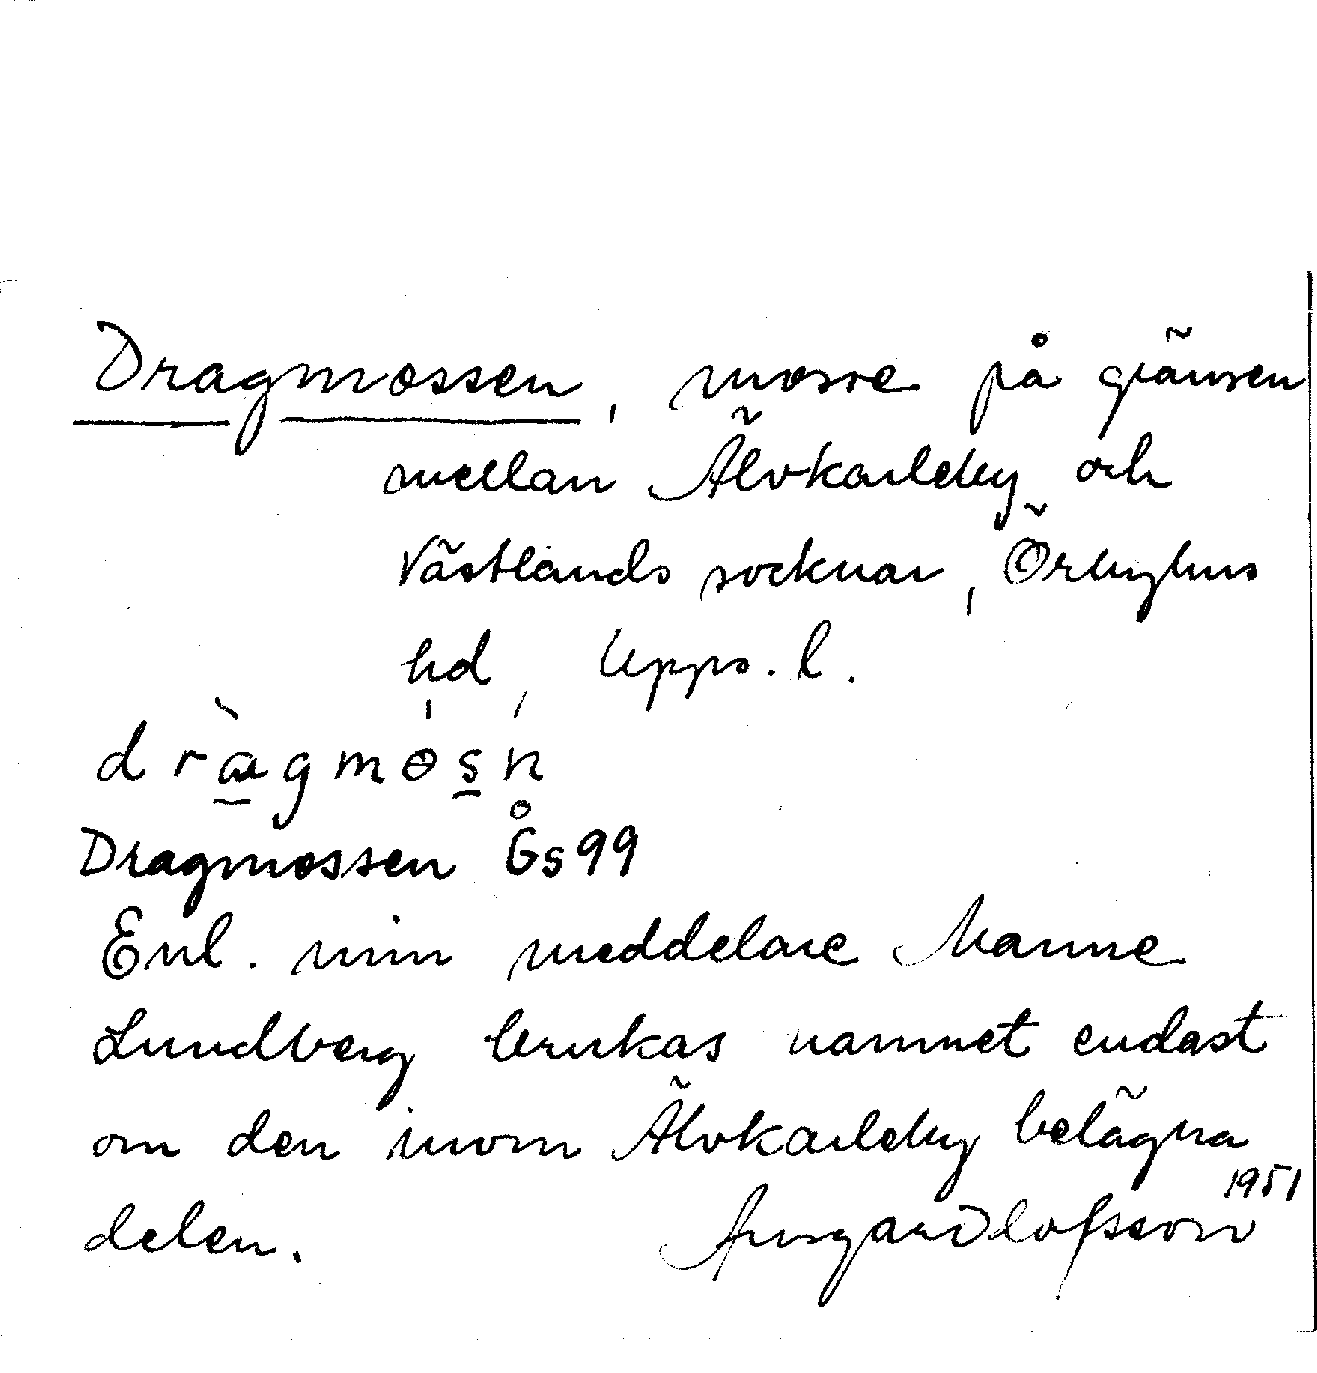 Dragmossen, mosse på gränsen
mellan Älvkarleby och
Västlands socknar, Örbyhus
hd, Upps. l.
dràgmosn
Dragmossen Gs 99
Enl. min meddelare Manne
Lundberg brukas namnet endast
om den inom Älvkarleby belägna
1951
delen. Ansgar Olofsson